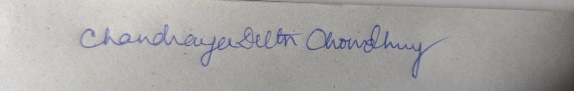 Chandrayee Dutta Chowdhury